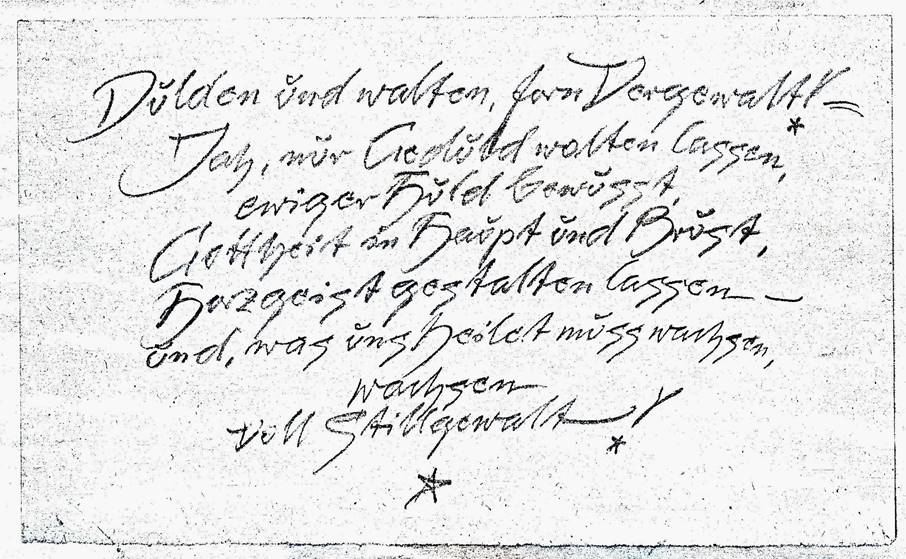 Dulden und walten, fern Vergewalt!
Jah, nur Geduld walten lassen,
ewiger Huld bewusst,
Gottheit in Haupt und Brust,
Harzgeist gestalten lassen —
und, was uns heilet muss wachsen,
wachsen
voll Stillgewalt!